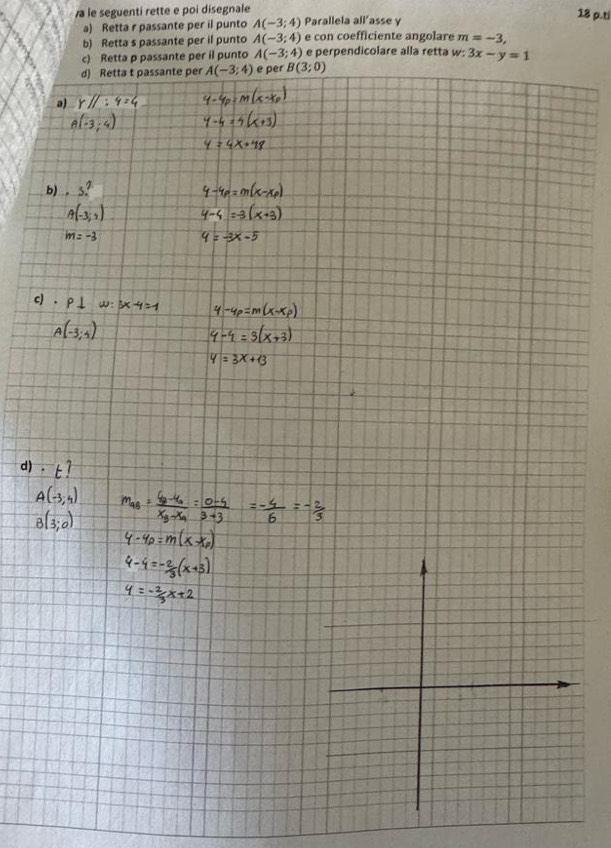 va le seguenti rette e poi disegnale
18 p.ti
a) Retta r passante per il punto A(−3; 4) Parallela all'asse y
b) Retta s passante per il punto A(−3; 4) e con coefficiente angolare m = −3,
c) Retta p passante per il punto A(−3; 4) e perpendicolare alla retta w: 3x − y = 1
d) Retta t passante per A(−3; 4) e per B(3; 0)
a) r // : y=4
A(-3;4)
y-yp=m(x-xp)
y-4=4(x+3)
b) . s?
A(-3;4)
m=-3
y-yp=m(x-xp)
y-4=-3(x+3)
y=-3x-5
c) . p⊥ w: 3x-y=1
A(-3;4)
y-yp=m(x-xp)
y-4=3(x+3)
y=3x+13
d) . t?
A(-3;4)
B(3;0)
mAB = yB-yA / xB-xA = 0-4 / 3+3 = -4/6 = -2/3
y-yp=m(x-xp)
y-4=-2/3(x+3)
y=-2/3x+2